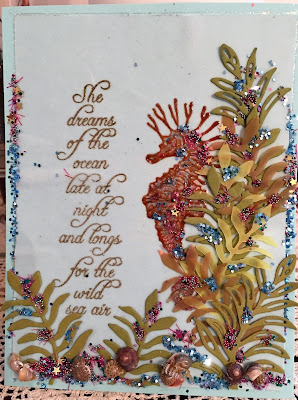 She
dreams
of the
ocean
late at
night
and longs
for the
wild
sea air